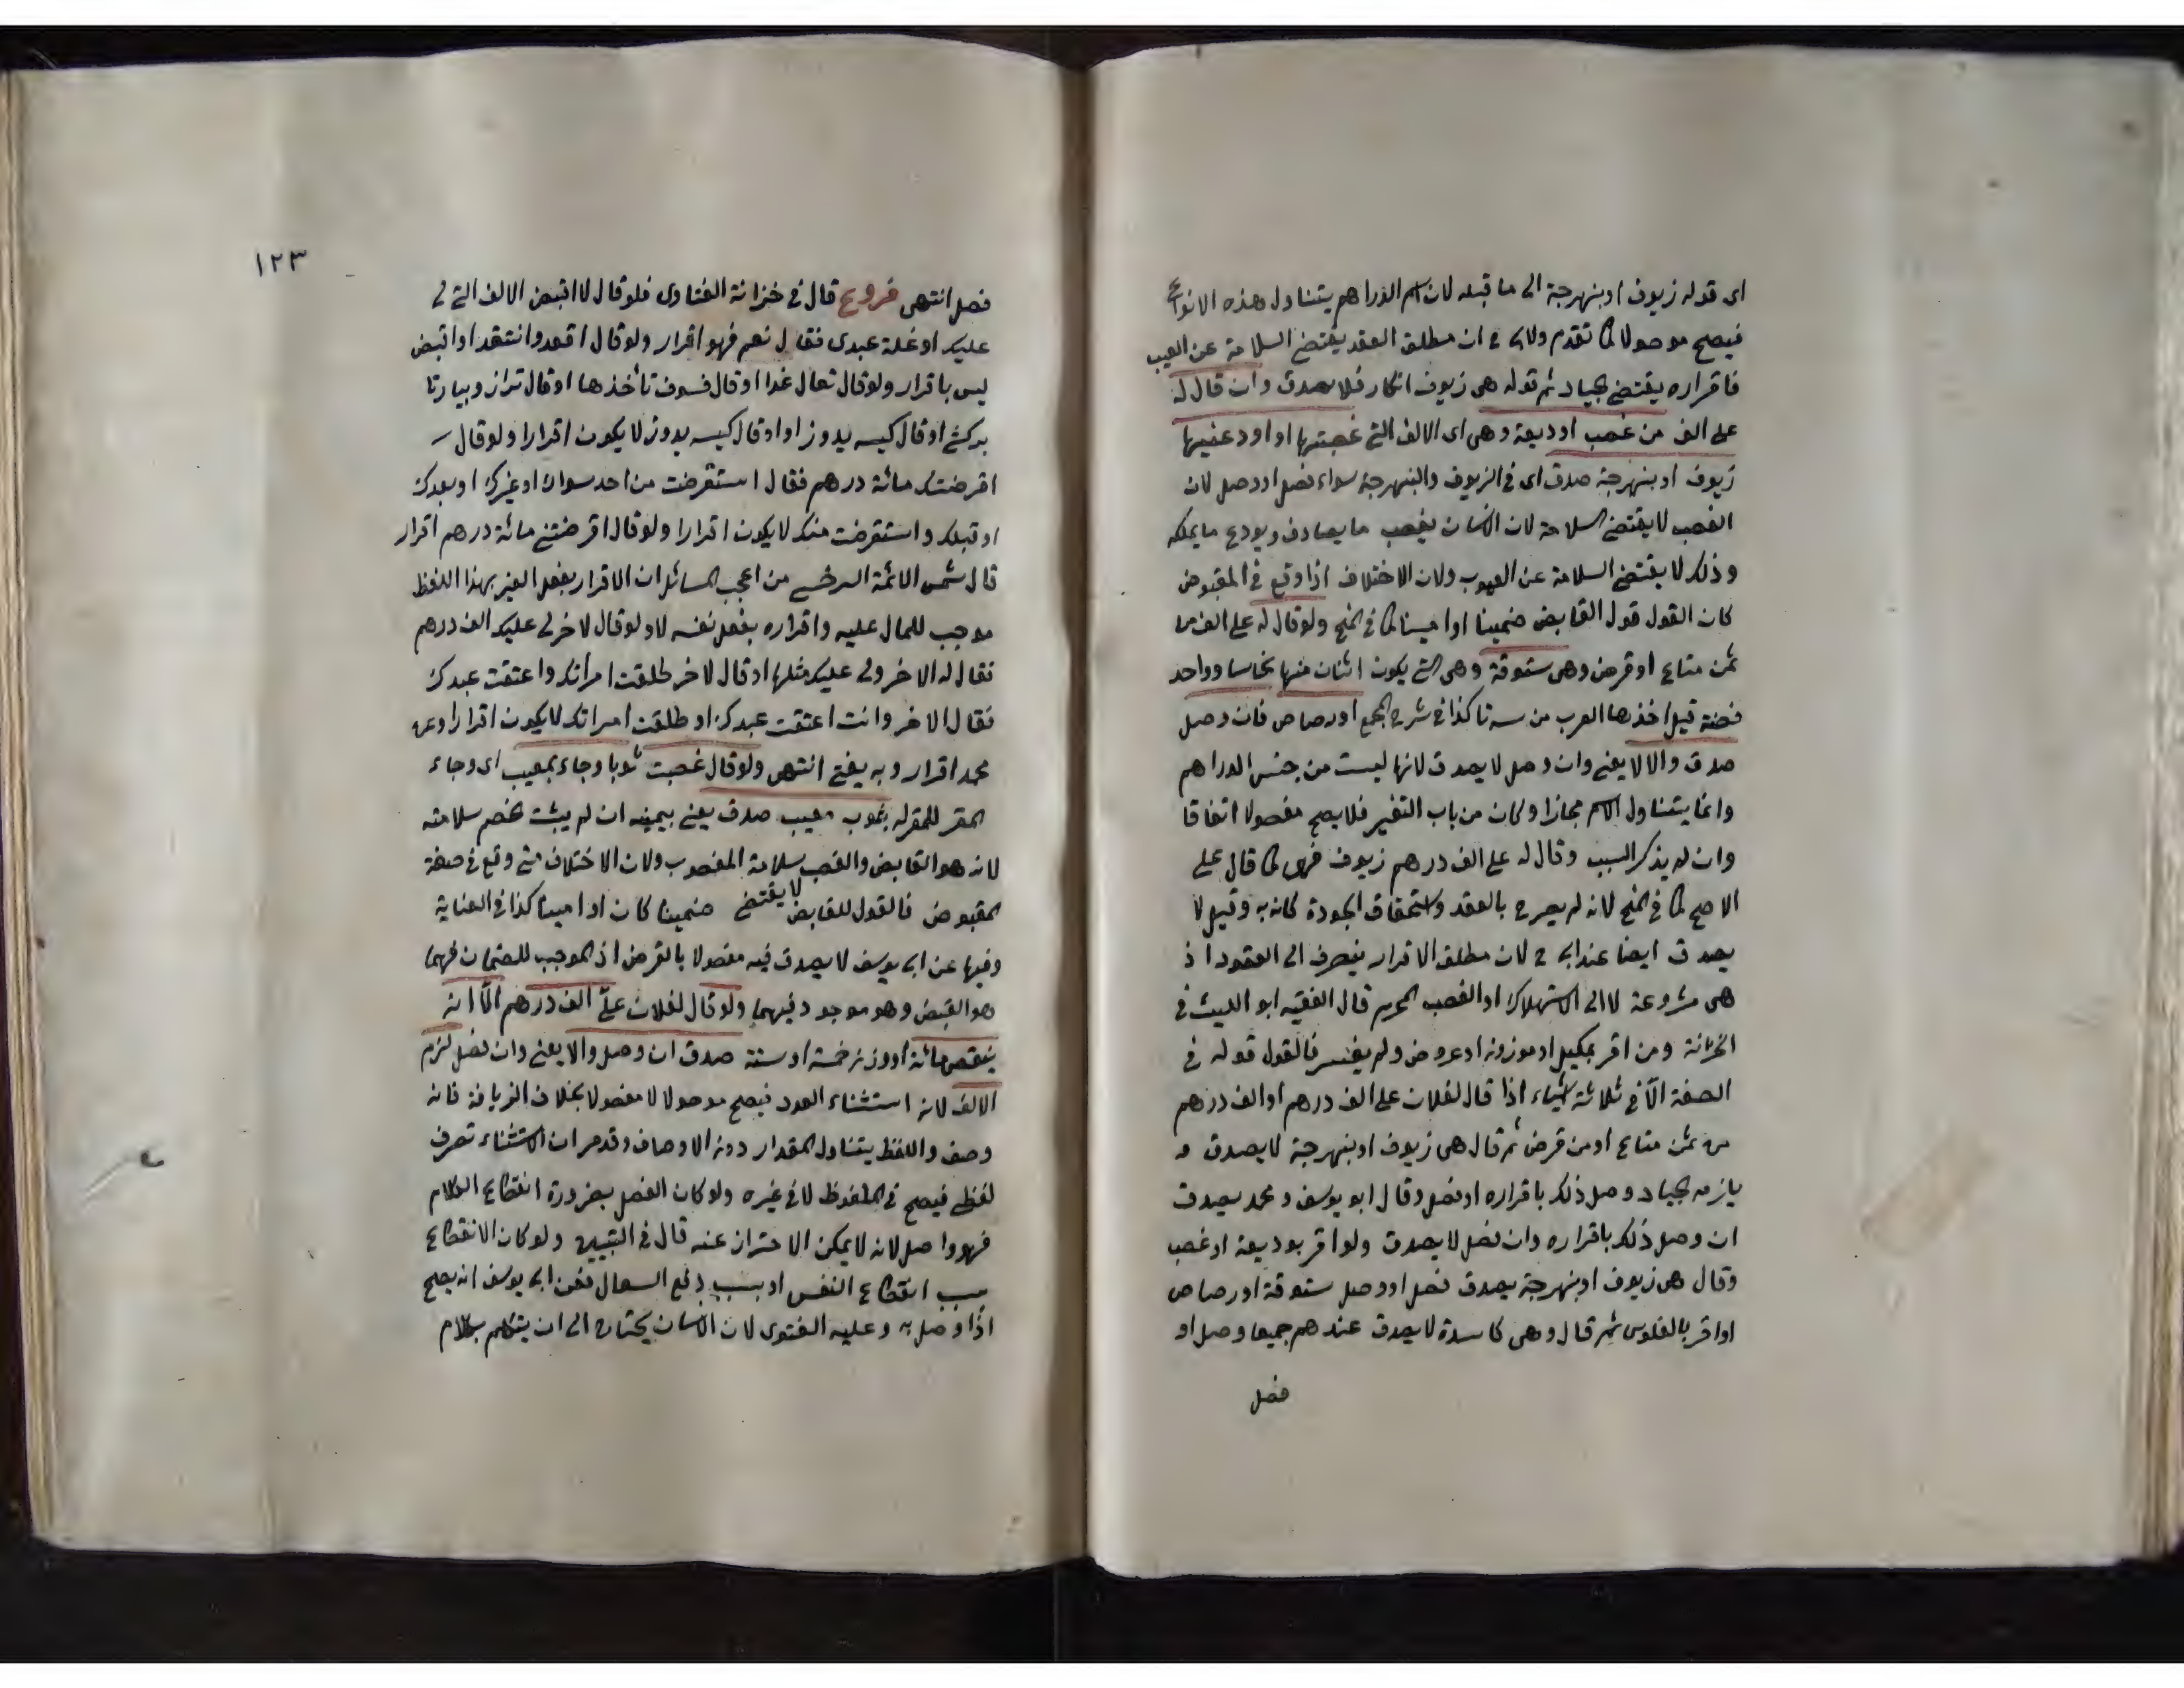 اى قوله زيوف او بنهرجة الى ما قبله لان اسم الدراهم يتناول هذه الانواع
فيصح موصولا كما تقدم ولابى ح ان مطلق العقد يقتضى السلامة عن العيب
فاقراره يقتضى الجياد ثم قوله هى زيوف انكار فلا يصدق وان قال له
على الف من غصب او وديعة وهى اى الالف التى غصبتها او اودعنيها
زيوف او بنهرجة صدق اى فى الزيوف والبنهرجة سواء فصل او وصل لان
الغصب لا يقتضى السلامة لان الانسان يغصب ما يصادف ويودع ما يملكه
وذلك لا يقتضى السلامة عن العيوب ولان الاختلاف اذا وقع فى المقبوض
كان القول قول القابض ضمينا او امينا كما فى المنح ولو قال له على الف من
ثمن متاع او قرض وهى ستوقة وهى التى يكون اثنان منها نحاسا وواحد
فضة قيل اخذها العرب من سه تا كذا فى شرح المجمع او رصاص فان وصل
صدق والا لا يعنى وان وصل لا يصدق لانها ليست من جنس الدراهم
وانما يتناول الاسم مجازا وكان من باب التغير فلا يصح مفصولا اتفاقا
وان لم يذكر السبب وقال له على الف درهم زيوف فهى كما قال على
الاصح كما فى المنح لانه لم يصرح بالعقد واستحقاق الجودة كان به وقيل لا
يصدق ايضا عند ابى ح لان مطلق الاقرار ينصرف الى العقود اذ
هى مشروعة لا الى الاستهلاك او الغصب المحرم قال الفقيه ابو الليث فى
الخزانة ومن اقر بمكيل او موزون او عروض ولم يفسر فالقول قوله فى
الصفة الا فى ثلاثة اشياء اذا قال لفلان على الف درهم او الف درهم
من ثمن متاع او من قرض ثم قال هى زيوف او بنهرجة لا يصدق و
يلزمه الجياد وصل ذلك باقراره او فصل وقال ابو يوسف ومحمد يصدق
ان وصل ذلك باقراره وان فصل لا يصدق ولو اقر بوديعة او غصب
وقال هى زيوف او بنهرجة يصدق فصل او وصل ستوقة او رصاص
او اقر بالفلوس ثم قال وهى كاسدة لا يصدق عندهم جميعا وصل او
فصل
١٢٣
فصل انتهى فروع قال فى خزانة الفتاوى فلو قال لا اقبض الالف التى لى
عليك او غلة عبدى فقال نعم فهو اقرار ولو قال اقعد وانتقد او اقبض
ليس باقرار ولو قال تعال غدا او قال فسوف تأخذها او قال ترازو بيار تا
بركشى او قال كيسه بدوز او او قال كيسه بدوز لا يكون اقرارا ولو قال
اقرضتك مائة درهم فقال استقرضت من احد سواك او غيرك او بعدك
او قبلك واستقرضت منك لا يكون اقرارا ولو قال اقرضتنى مائة درهم اقرار
قال شمس الائمة السرخسى من اعجب المسائل ان الاقرار بفعل الغير بهذا اللفظ
موجب للمال عليه واقراره بفعل نفسه لا ولو قال لاخر لى عليك الف درهم
فقال له الاخر ولى عليك مثلها او قال لاخر طلقت امرأتك واعتقت عبدك
فقال الاخر وانت اعتقت عبدك او طلقت امراتك لا يكون اقرارا وعن
محمد اقرار وبه يفتى انتهى ولو قال غصبت ثوبا وجاء بمعيب اى وجاء
المقر للمقر له بثوب معيب صدق يعنى بيمينه ان لم يثبت خصم سلامته
لانه هو القابض والغصب سلامة المغصوب ولان الاختلاف متى وقع فى صفة
المقبوض فالقول للقابض لا يقتضى ضمينا كان او امينا كذا فى العناية
وفيها عن ابى يوسف لا يصدق فيه مفصولا بالقرض اذ الموجب للضمان فيهما
هو القبض وهو موجود فيهما ولو قال لفلان علىّ الف درهم الّا انه
ينقص مائة او وزن خمسة او ستة صدق ان وصل والا يعنى وان فصل لزم
الالف لانه استثناء العدد فيصح موصولا لا مفصولا بخلاف الزيافة فانه
وصف واللفظ يتناول المقدار دون الاوصاف وقد مر ان الاستثناء تصرف
لفظى فيصح فى الملفوظ لا فى غيره ولو كان الفصل بضرورة انقطاع الكلام
فهو واصل لانه لا يمكن الاحتراز عنه قال فى التبيين ولو كان الانقطاع
بسبب انقطاع النفس او بسبب دفع السعال فعن ابى يوسف انه يصح
اذا وصل به وعليه الفتوى لان الانسان يحتاج الى ان يتكلم بكلام